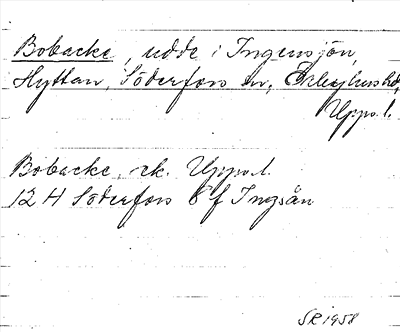 Bobacke, udde i Ingensjön,
Hyttan, Söderfors sn, Örbyhus hd,
Upps. l.
Bobacke, ek. Upps. l.
12 H Söderfors 8 f Ingsån
SR 1958